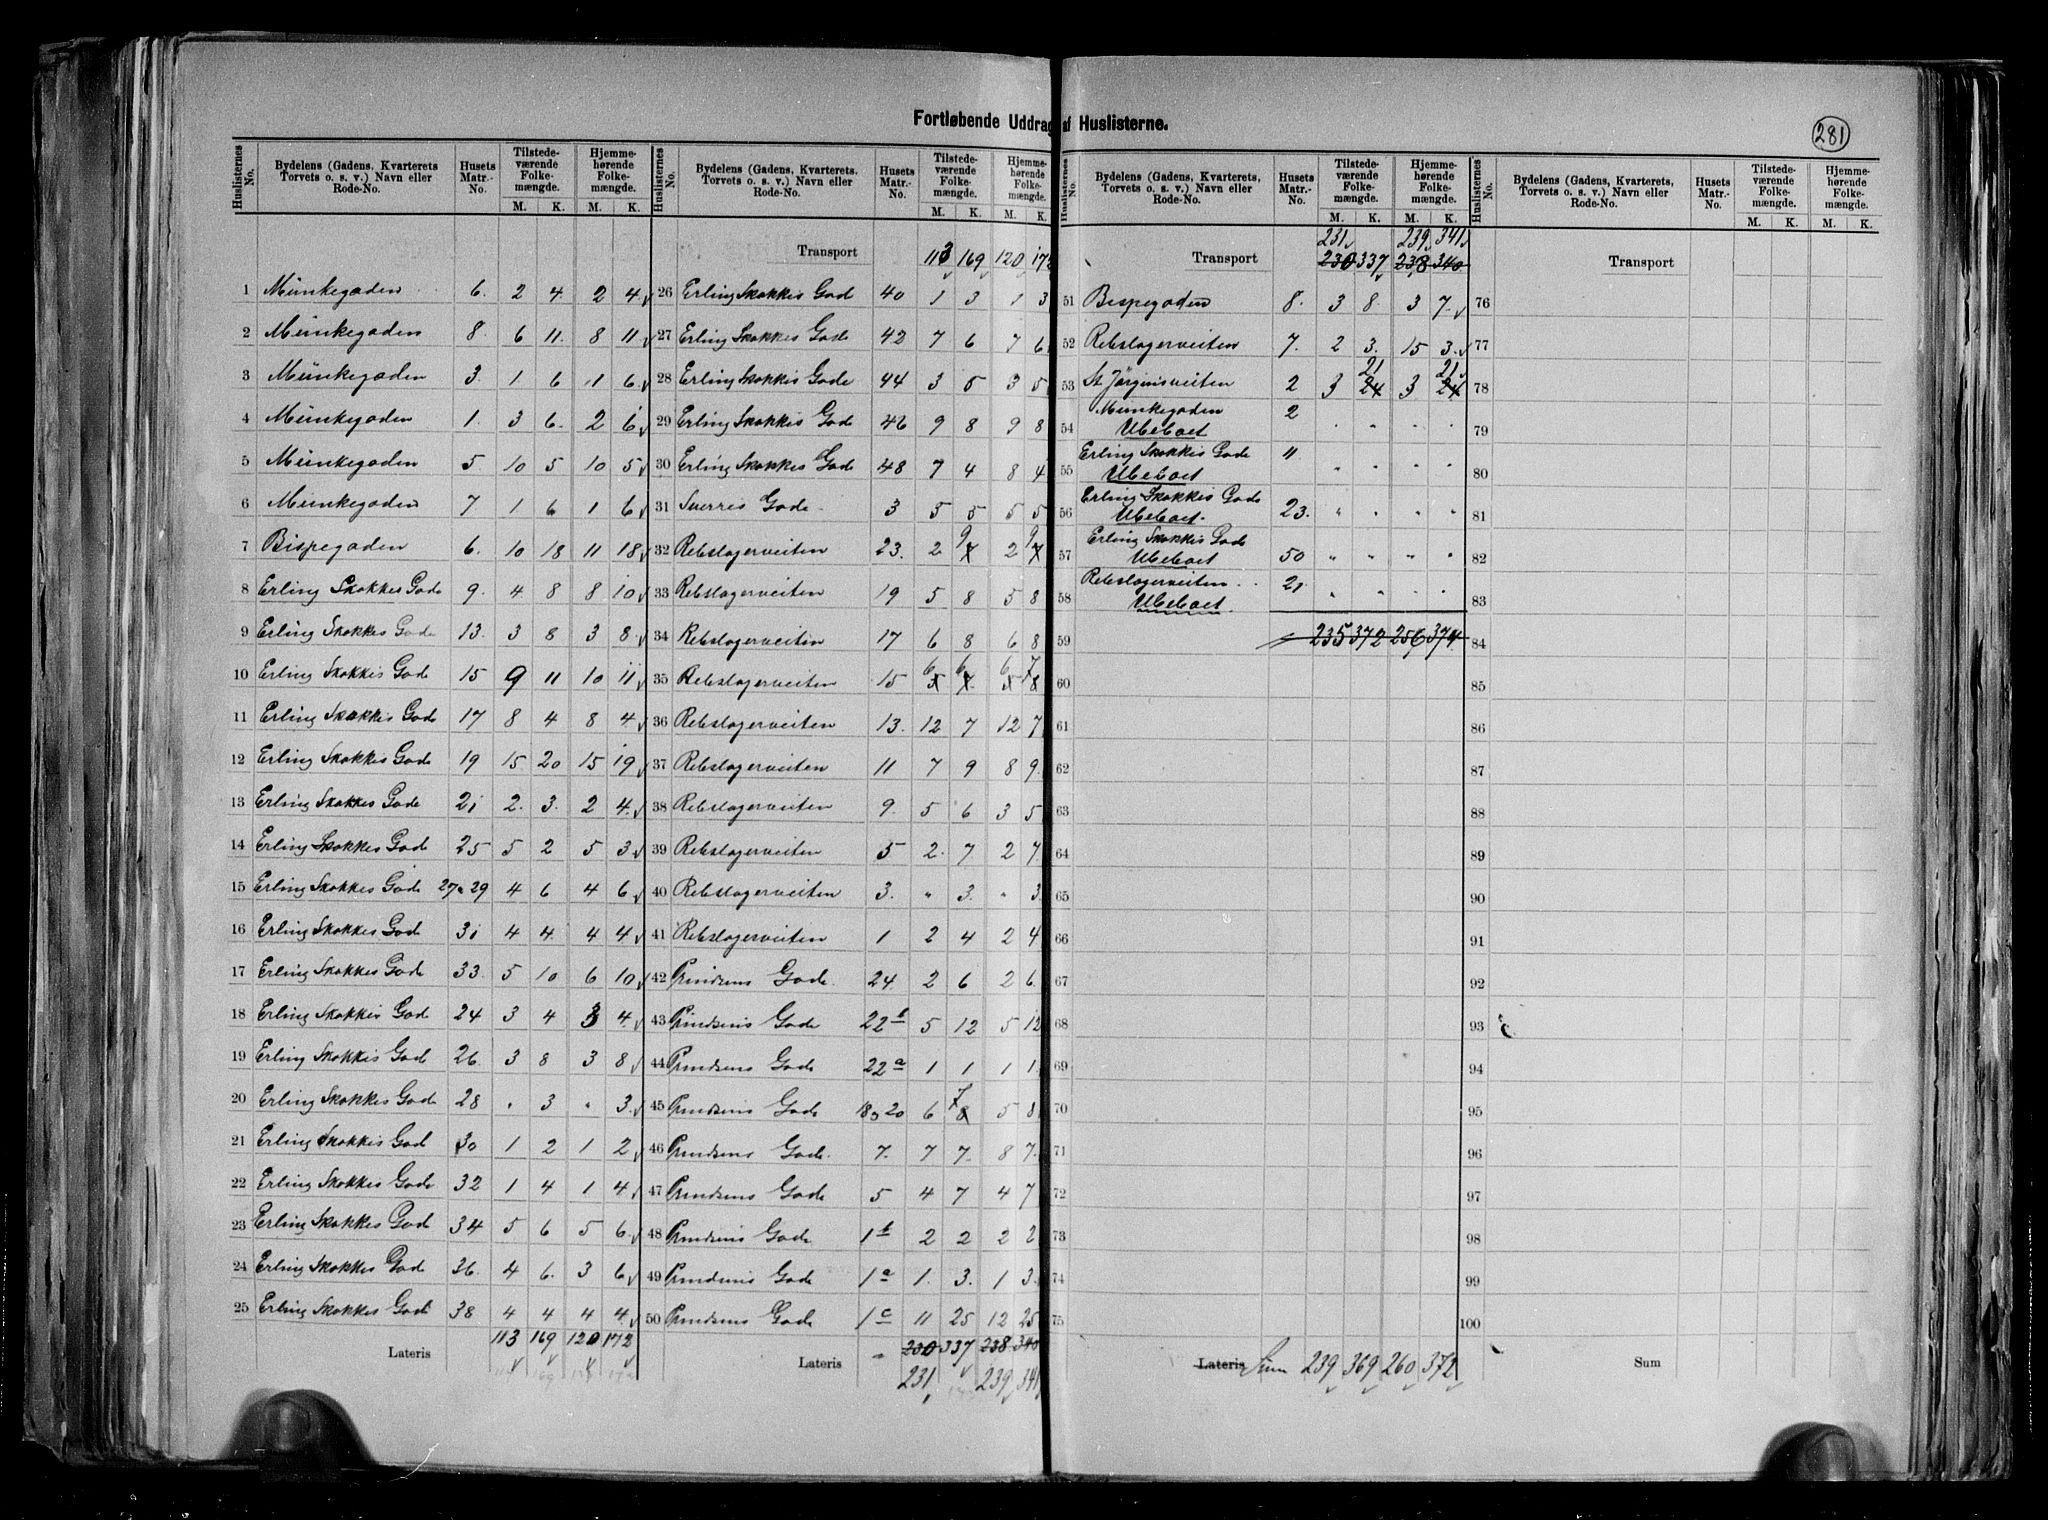 Fortløbende Uddrag af Huslisterne.
281
Huslisternes No. Bydelens (Gadens, Kvarterets Torvets o. s. v.) Navn eller Rode-No. Husets Matr.-No. Tilstede-værende Folke-mængde. M. K. Hjemme-hørende Folke-mængde. M. K.
1 Munkegaden 6. 2 4. 2 4
2 Munkegaden 8. 6 11. 8 11
3 Munkegaden 3. 1 6 1 6
4 Munkegaden 1. 3 6. 2 6
5 Munkegaden 5 10 5 10 5
6 Munkegaden 7 1 6 1 6
7 Bispegaden 6. 10 18 11 18
8 Erling Skakkes Gade 9. 4 8 8 10
9 Erling Skakkes Gade 13. 3 8 3 8
10 Erling Skakkes Gade 15 9 11 10 11
11 Erling Skakkes Gade 17 8 4 8 4
12 Erling Skakkes Gade 19 15 20 15 19
13 Erling Skakkes Gade 21 2. 3. 2 4
14 Erling Skakkes Gade 25 5 2 5 3
15 Erling Skakkes Gade 27 & 29 4 6 4 6
16 Erling Skakkes Gade 31 4 4 4 4
17 Erling Skakkes Gade 33. 5 10 6 10
18 Erling Skakkes Gade 24 3 4 3 4
19 Erling Skakkes Gade 26. 3 8 3 8
20 Erling Skakkes Gade 28 " 3 " 3
21 Erling Skakkes Gade 30 1 2 1 2
22 Erling Skakkes Gade 32 1 4 1 4
23 Erling Skakkes Gade 34 5 6 5 6
24 Erling Skakkes Gade 36. 4 6. 3 6
25 Erling Skakkes Gade 38 4 4 4 4
Lateris 113 169 120 172
Huslisternes No. Bydelens (Gadens, Kvarterets, Torvets o. s. v.) Navn eller Rode-No. Husets Matr.-No. Tilstede-værende Folke-mængde. M. K. Hjemme-hørende Folke-mængde. M. K.
Transport 113 169 120 172
26 Erling Skakkes Gade 40 1 3 1 3
27 Erling Skakkes Gade 42 7 6 7 6
28 Erling Skakkes Gade 44 3 5 3 5
29 Erling Skakkes Gade 46 9 8 9 8
30 Erling Skakkes Gade 48 7 4 8 4
31 Sverres Gade 3 5 5 5 5
32 Rebslagerveiten 23. 2 9 2 9
33 Rebslagerveiten 19 5 8 5 8
34 Rebslagerveiten 17 6 8 6 8
35 Rebslagerveiten 15 6 5 6 7 6 5 7 8
36 Rebslagerveiten 13. 12 7 12 7
37 Rebslagerveiten 11 7 9 8 9
38 Rebslagerveiten 9. 5 6 3 5
39 Rebslagerveiten 5 2. 7 2 7
40 Rebslagerveiten 3. " 3. " 3
41 Rebslagerveiten 1 2 4 2 4
42 Prindsens Gade 24. 2 6 2 6
43 Prindsens Gade 22 b 5 12 5 12
44 Prindsens Gade 22 a 1 1 1 1
45 Prindsens Gade 18 & 20 6 7 8 5 8
46 Prindsens Gade 7. 7 7. 8 7
47 Prindsens Gade 5 4 7 4 7
48 Prindsens Gade 1 b 2 2 2 2
49 Prindsens Gade 1 a 1. 3. 1 3
50 Prindsens Gade 1 c 11 25 12 25
Lateris 230 337 238 340
231 239 341
Huslisternes No. Bydelens (Gadens, Kvarterets, Torvets o. s. v.) Navn eller Rode-No. Husets Matr.-No. Tilstede-værende Folke-mængde. M. K. Hjemme-hørende Folke-mængde. M. K.
231 239 341
Transport 230 337 238 340
51 Bispegaden 8. 3 8. 3 7
52 Rebslagerveiten 7. 2 3. 15 3
21 21
53 St Jørginsveiten 2 3 24 3 24
54 Munkegaden 2 Ubeboet " " " "
55 Erling Skakkes Gade 11 Ubeboet " " " "
56 Erling Skakkes Gade 23. Ubeboet. " " " "
57 Erling Skakkes Gade 50 Ubeboet " " " "
58 Rebslagerveiten 21 Ubeboet. " " " "
59 235 372 256 374
60
61
62
63
64
65
66
67
68
69
70
71
72
73
74
75
Lateris Sum 239 369 260 372
Huslisternes No. Bydelens (Gadens, Kvarterets, Torvets o. s. v.) Navn eller Rode-No. Husets Matr.-No. Tilstede-værende Folke-mængde. M. K. Hjemme-hørende Folke-mængde. M. K.
Transport
76
77
78
79
80
81
82
83
84
85
86
87
88
89
90
91
92
93
94
95
96
97
98
99
100
Sum